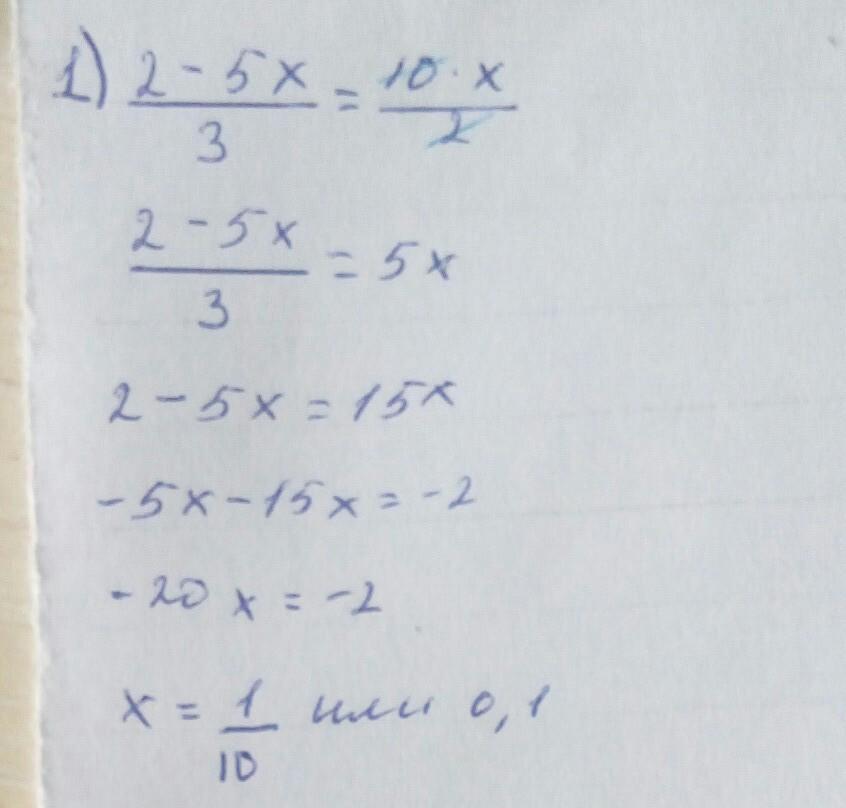 1) (2 - 5x)/3 = (10 · x)/2
(2 - 5x)/3 = 5x
2 - 5x = 15x
-5x - 15x = -2
-20x = -2
x = 1/10 или 0,1